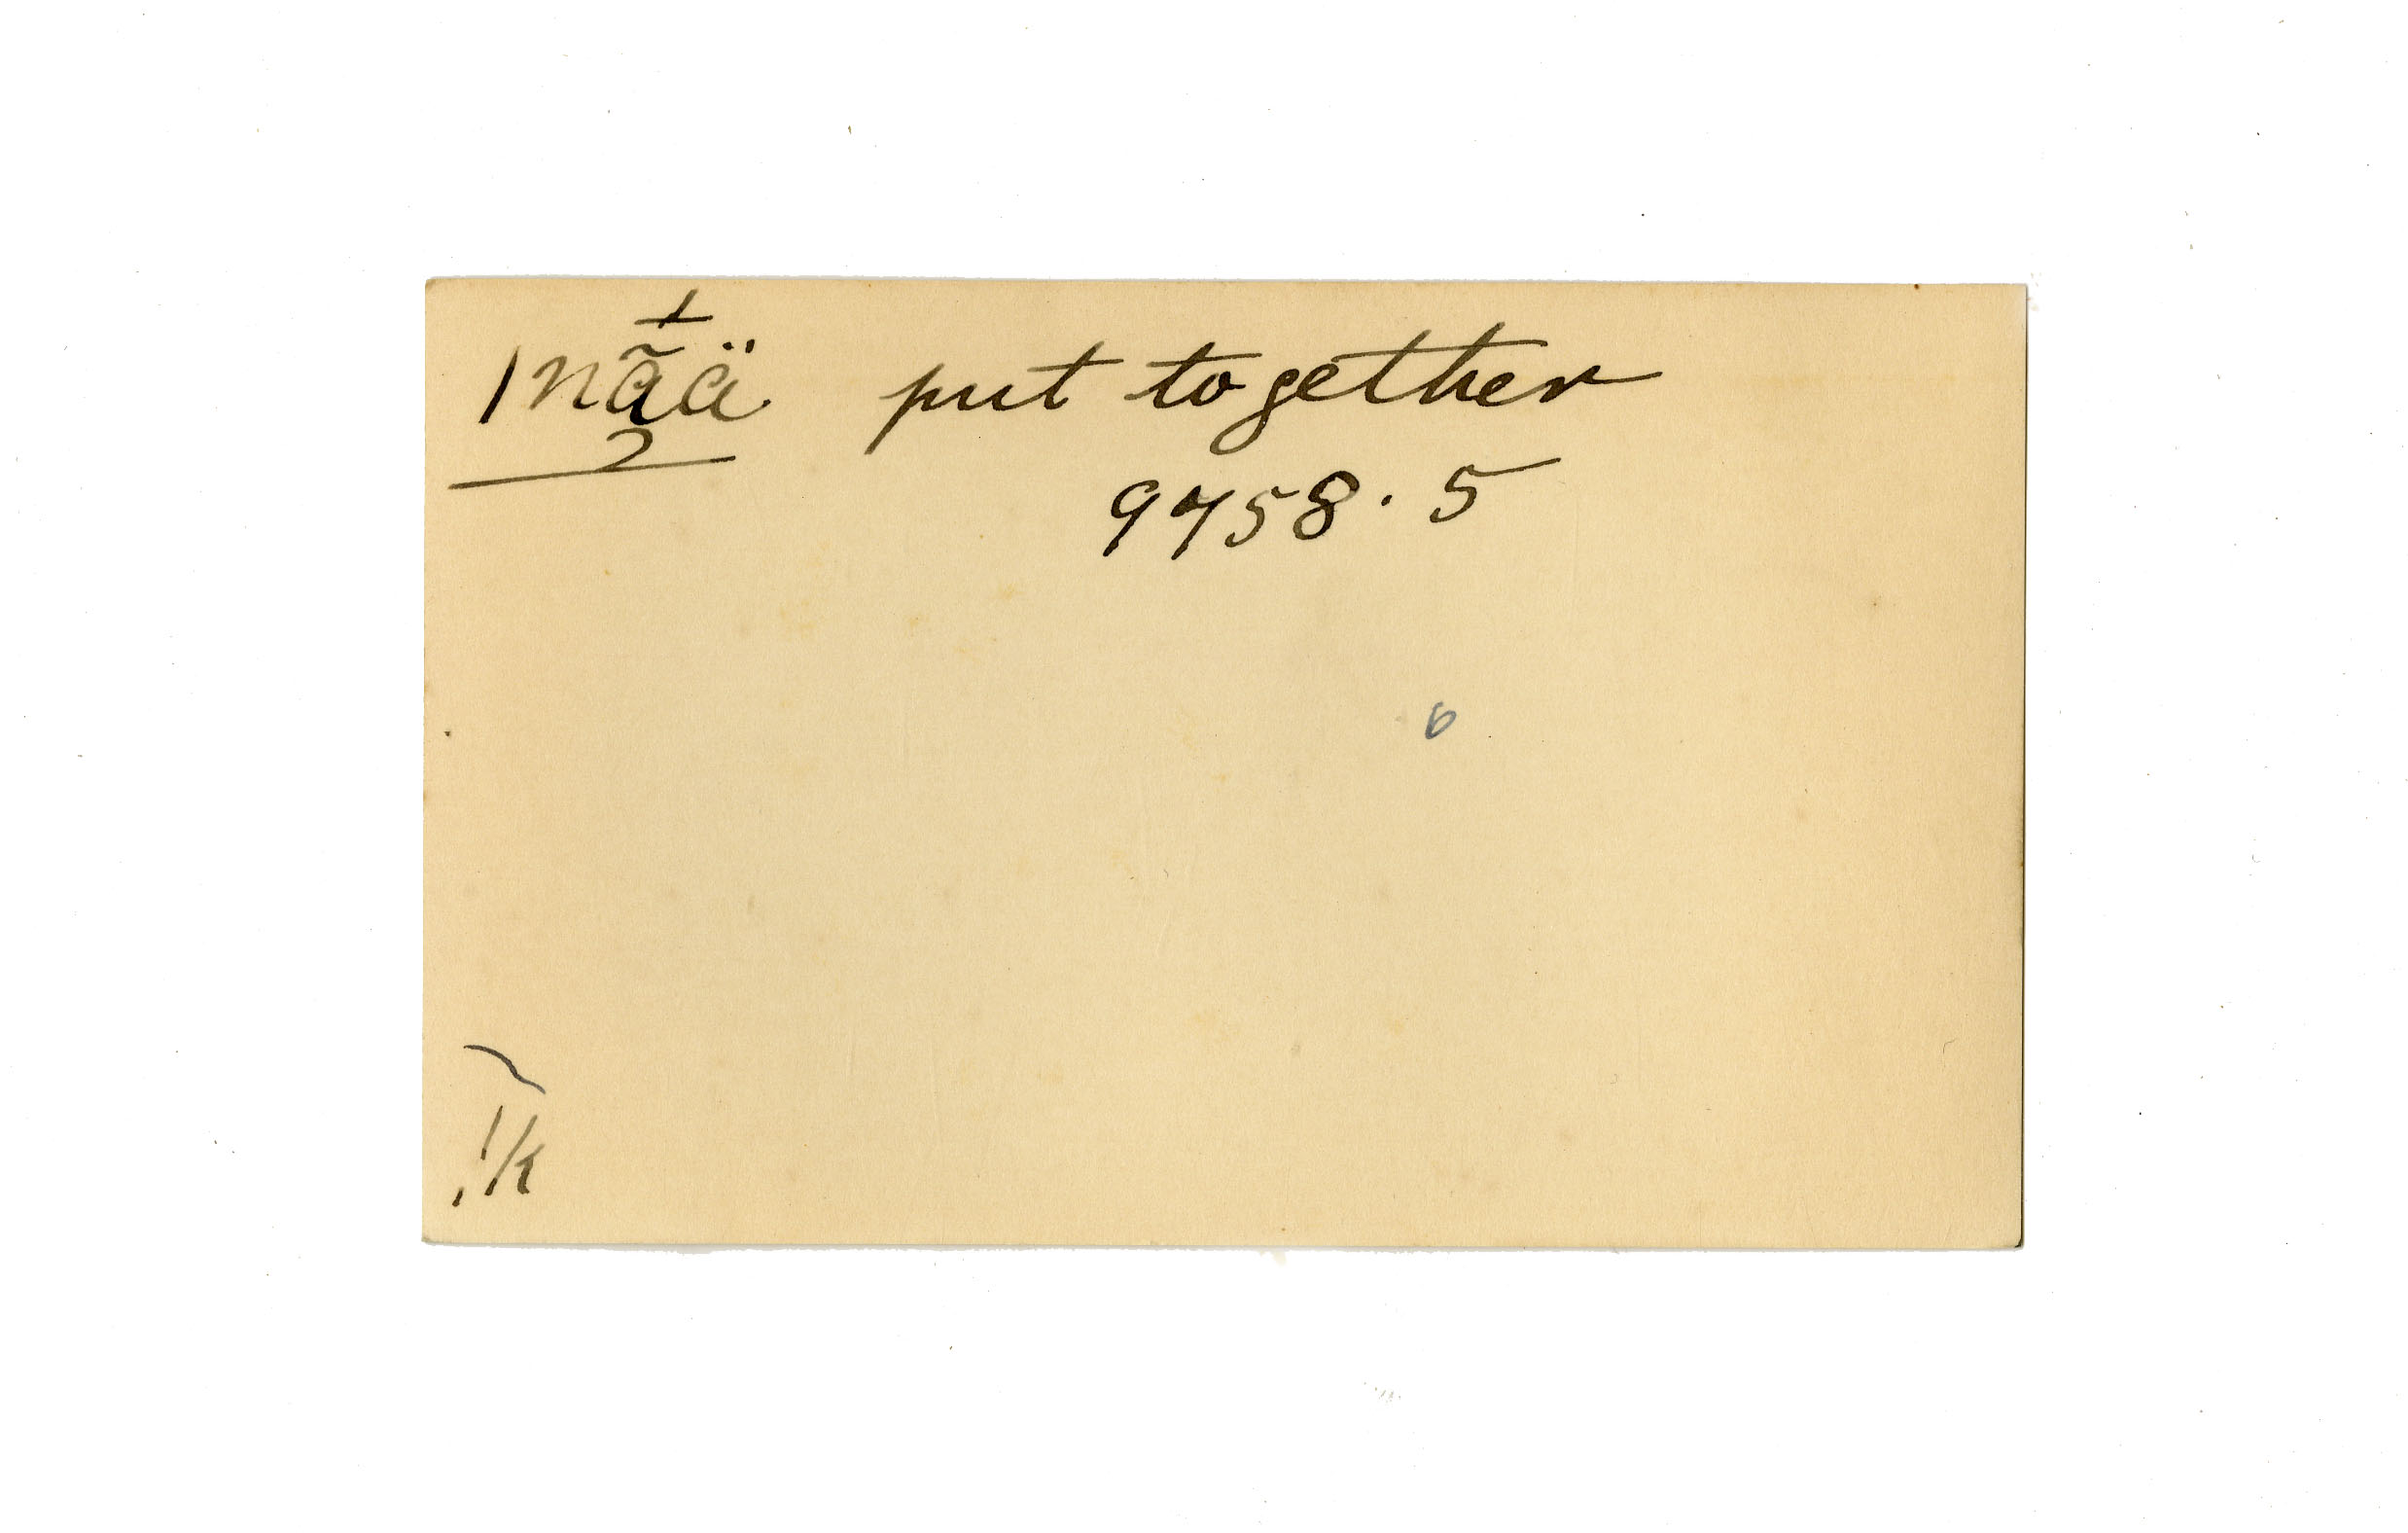 |nã̱́ä put together
2
9758.5
6
!/k